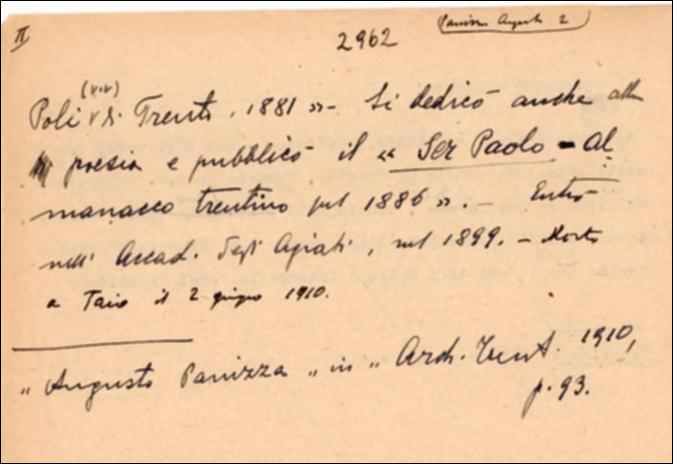 II
2962
Panizza Augusto 2
(v.v)
Poli Trento. 1881 »- Si dedicò anche alla
poesia e pubblicò il « Ser Paolo - Al
manacco trentino pel 1886 ». - Entrò
nell' Accad. degl' Agiati, nel 1899. - Morto
a Taio il 2 giugno 1910.
„ Augusto Panizza „ in „ Arch. Trent. 1910,
p. 93.